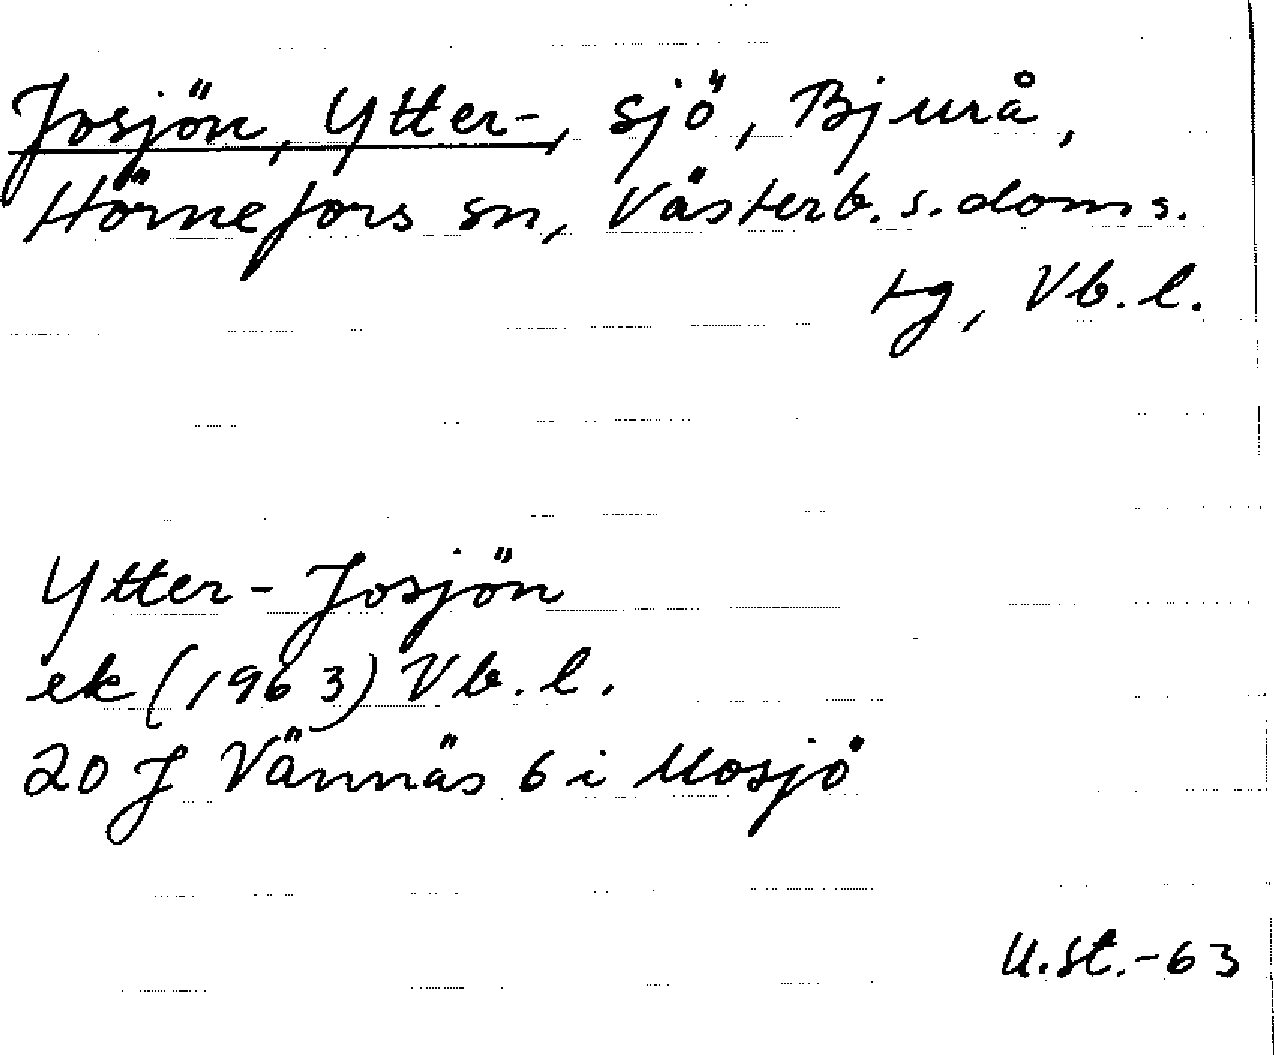 Josjön, Ytter-, sjö, Bjurå,
Hörnefors sn, Västerb. s. doms.
tg, Vb. l.
Ytter-Josjön
ek (1963) Vb. l.
20 J Vännäs 6 i Mosjö
U.St.-63